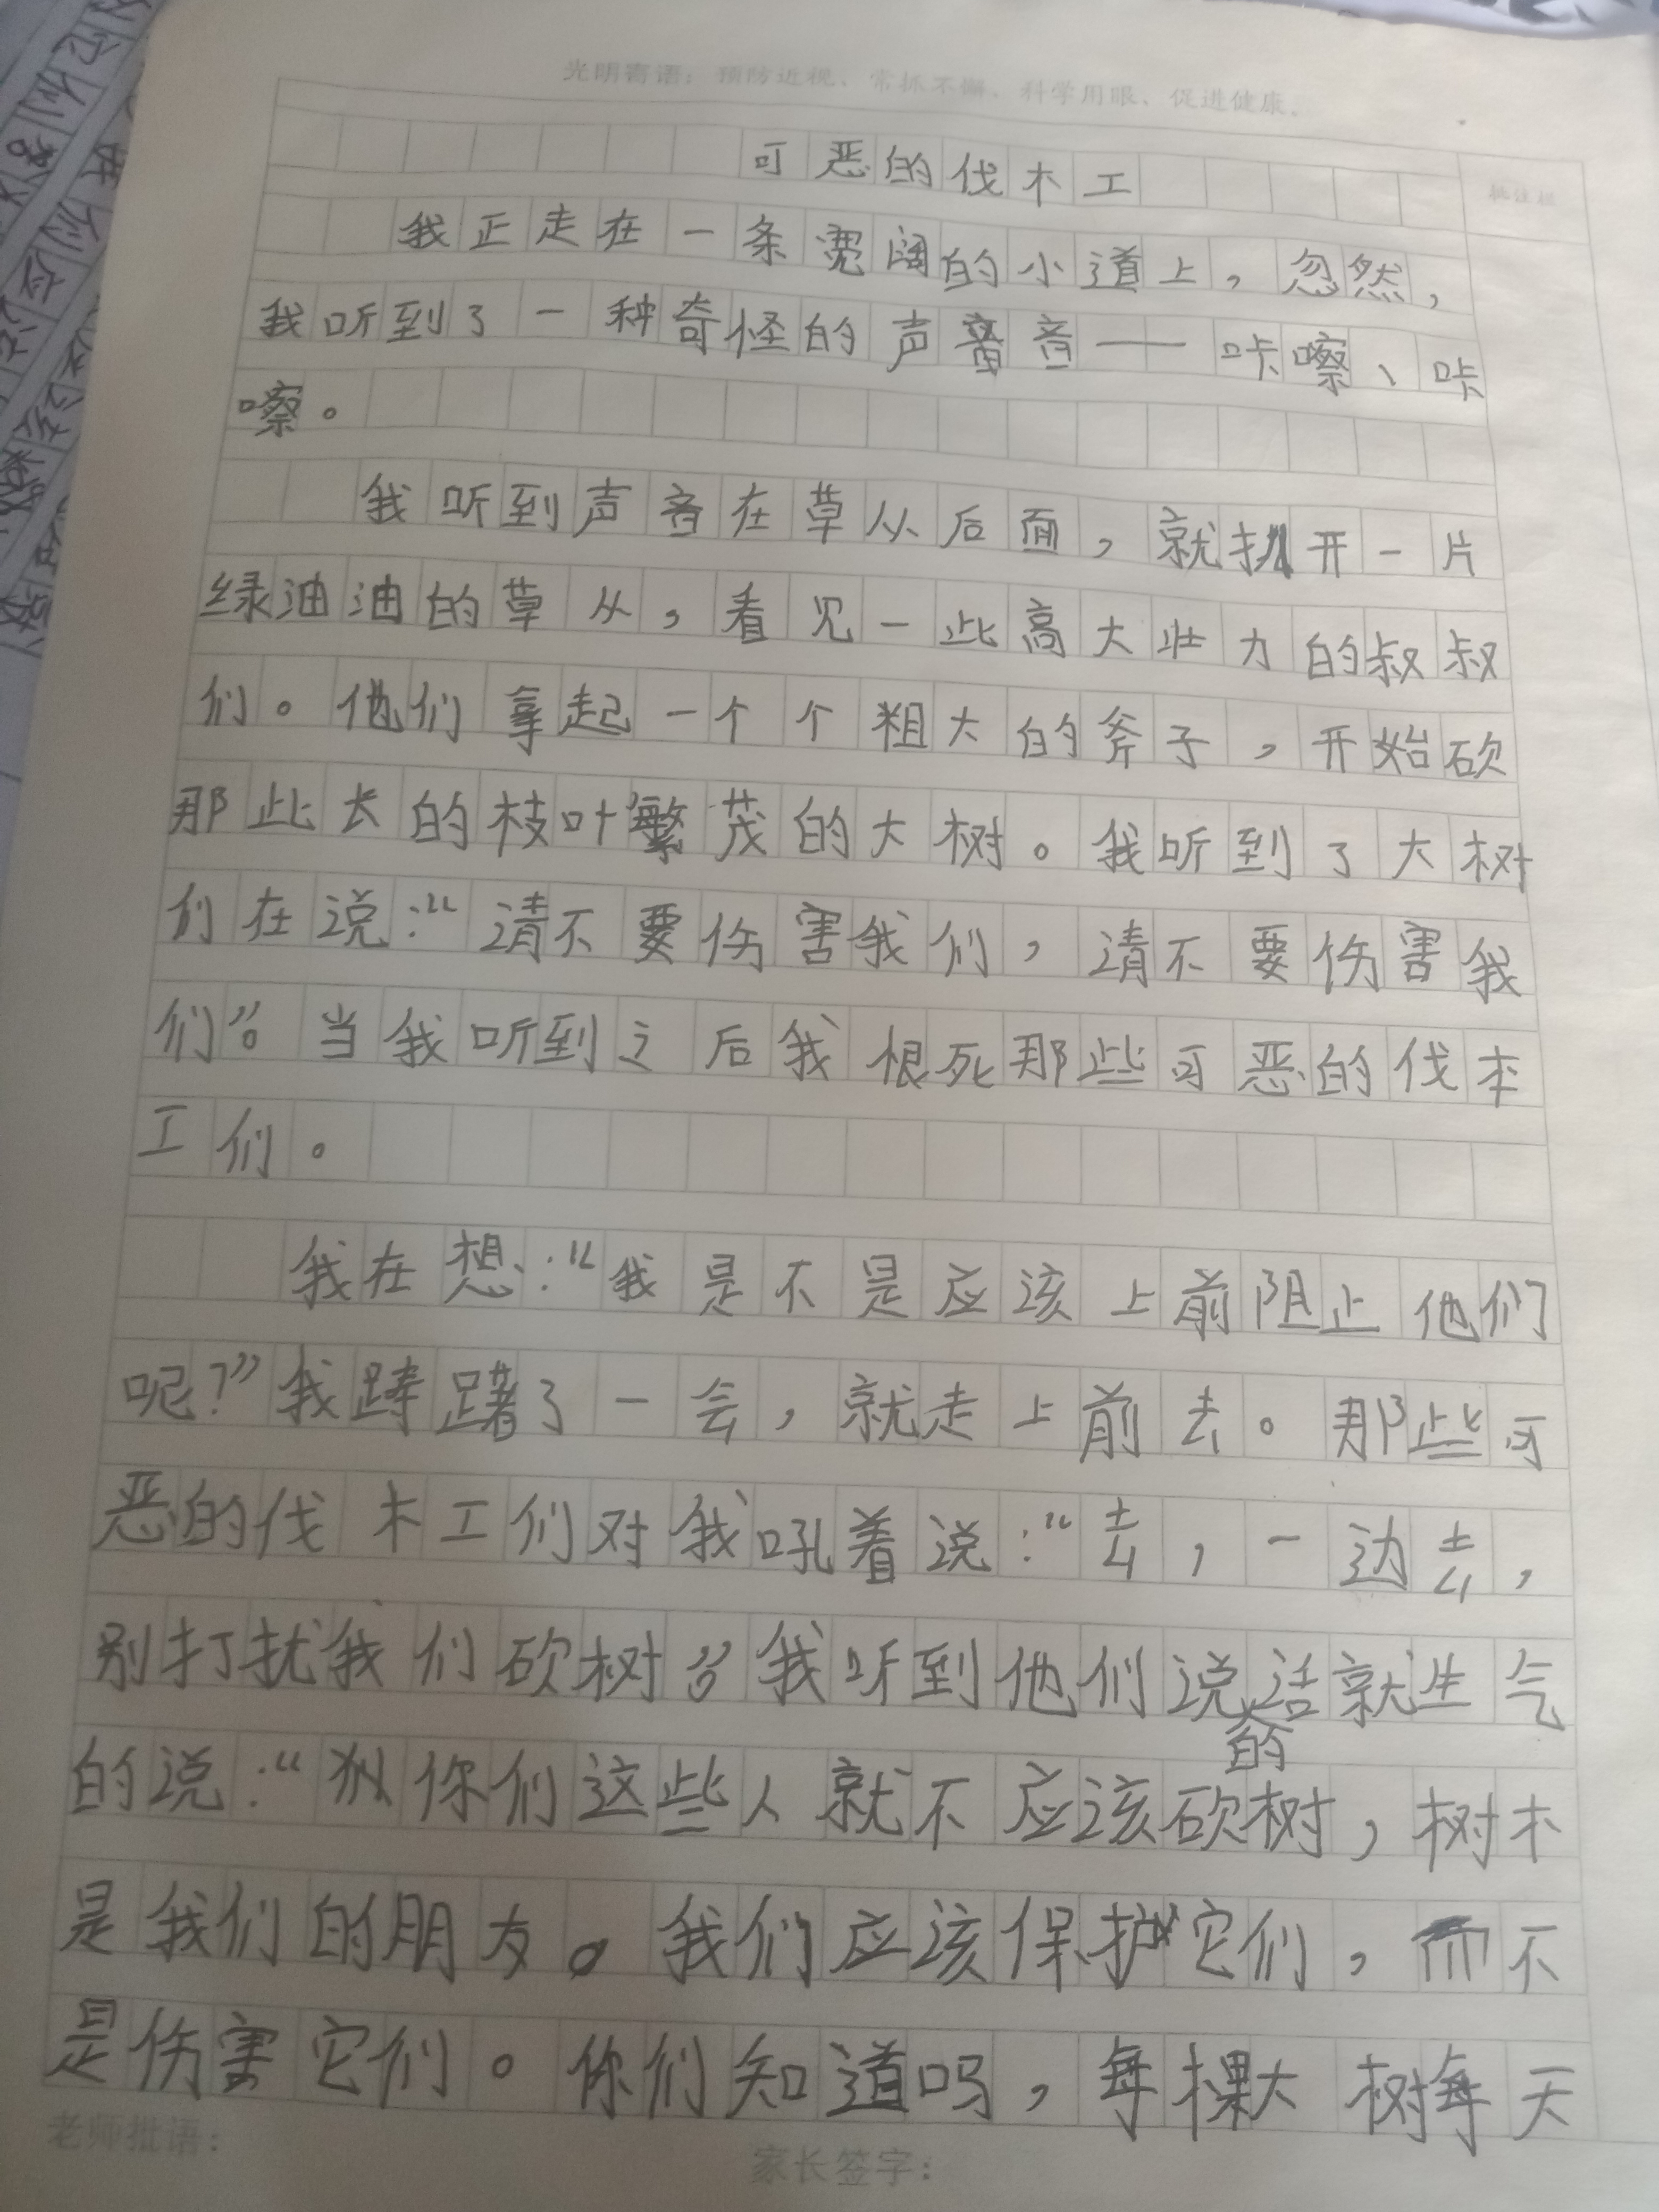 光明寄语：预防近视、常抓不懈、科学用眼、促进健康。
可恶的伐木工
批注栏
我正走在一条宽阔的小道上，忽然，
我听到了一种奇怪的声音——咔嚓、咔
嚓。
我听到声音在草从后面，就扒开一片
绿油油的草从，看见一些高大壮力的叔叔
们。他们拿起一个个粗大的斧子，开始砍
那些长的枝叶繁茂的大树。我听到了大树
们在说：“请不要伤害我们，请不要伤害我
们”。当我听到之后我恨死那些可恶的伐本
工们。
我在想：“我是不是应该上前阻止他们
呢？”我踌躇了一会，就走上前去。那些可
恶的伐木工们对我吼着说：“去，一边去，
别打扰我们砍树”。我听到他们说的话就生气
的说：“你们这些人就不应该砍树，树木
是我们的朋友。我们应该保护它们，而不
是伤害它们。你们知道吗，每棵大树每天
老师批语：
家长签字：